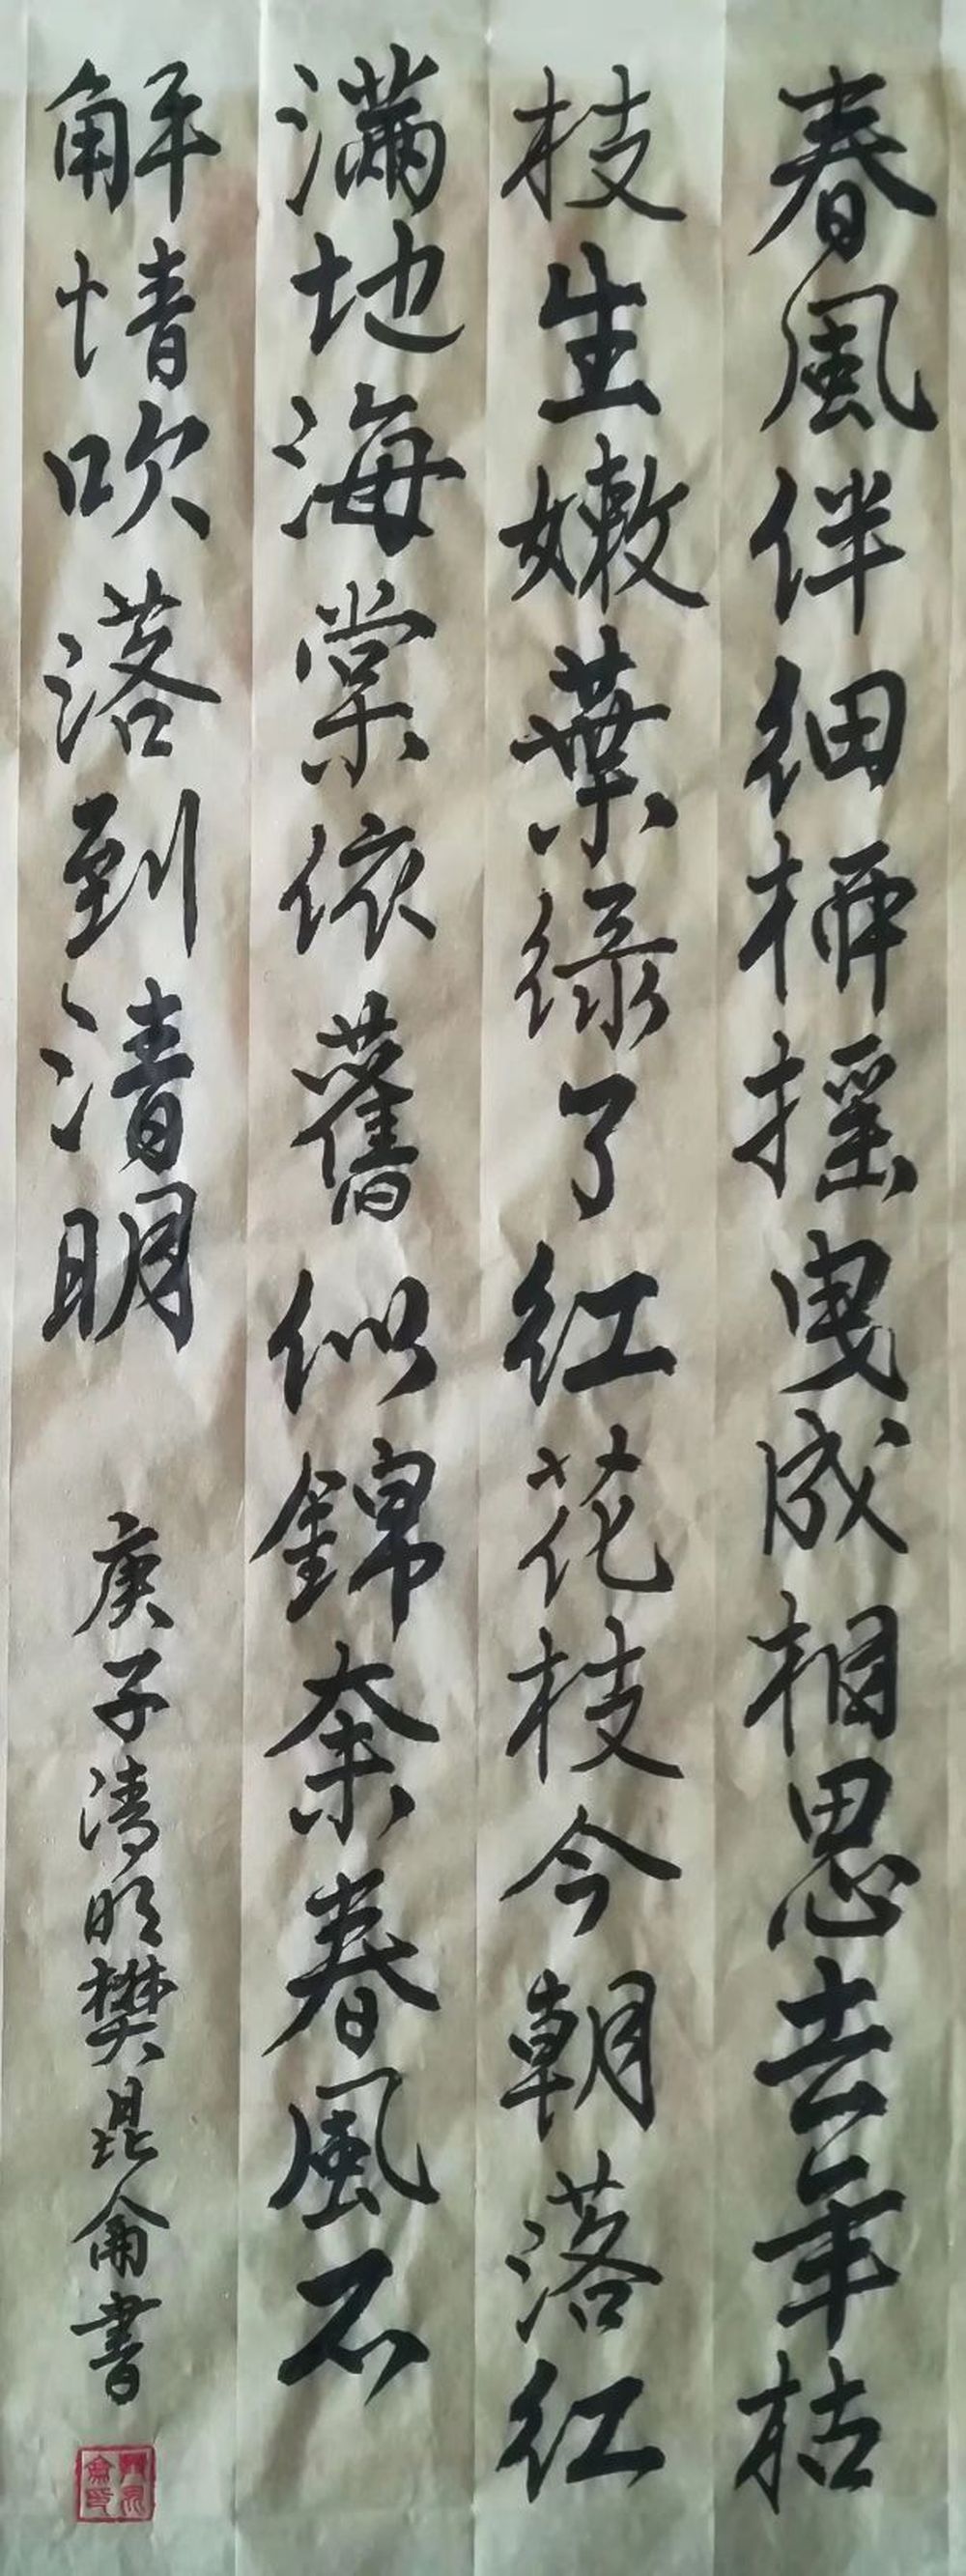 春風伴細柳搖曳成相思去年枯
枝生嫩葉綠了紅花枝今朝落紅
滿地海棠依舊似錦奈春風不
解情吹落到清明
庚子清明樊昆侖書